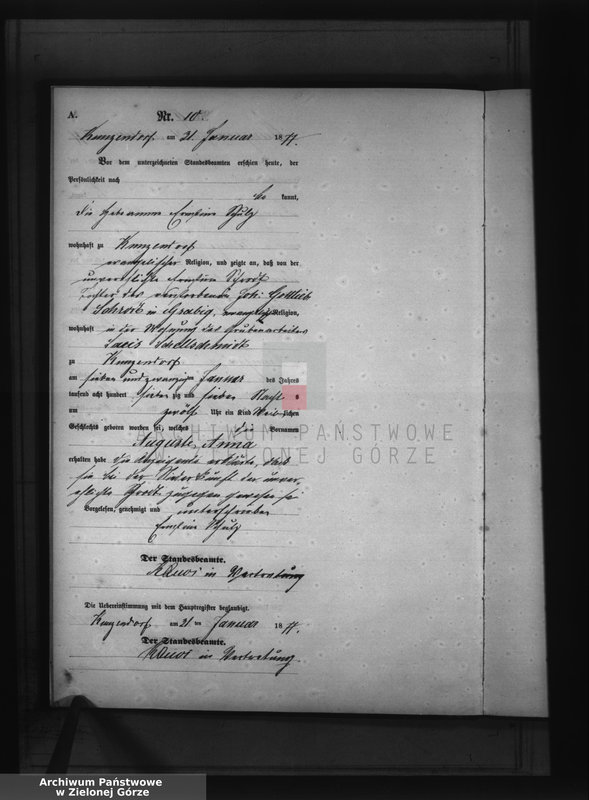 A.
Nr. 10.
Kunzendorf am 21. Januar 1877.
Vor dem unterzeichneten Standesbeamten erschien heute, der
Persönlichkeit nach
be kannt,
die Hebamme Ernstine Schulz
wohnhaft zu Kunzendorf
evangelischer Religion, und zeigte an, daß von der
unverehelichte
Tochter des verstorbenen Joh: Gottlieb
in evangelisch Religion,
wohnhaft in der Wohnung des Grubenarbeiters
zu Kunzendorf
am Januar des Jahres
tausend acht hundert siebenzig und sieben Nachts
um zwölf Uhr ein Kind Weiblichen
Geschlechts geboren worden sei, welches die Vornamen
Auguste Anna
erhalten habe die Anzeigende erklärte, daß
sie bei der Niederkunft der unver-
ehelichte zugegen gewesen sei
Vorgelesen, genehmigt und unterschrieben
Ernstine Schulz
Der Standesbeamte.
in Vertretung
Die Uebereinstimmung mit dem Hauptregister beglaubigt.
Kunzendorf am 21 ten Januar 1877.
Der Standesbeamte.
in Vertretung
ARCHIWUM PAŃSTWOWE
W ZIELONEJ GÓRZE
Archiwum Państwowe
w Zielonej Górze